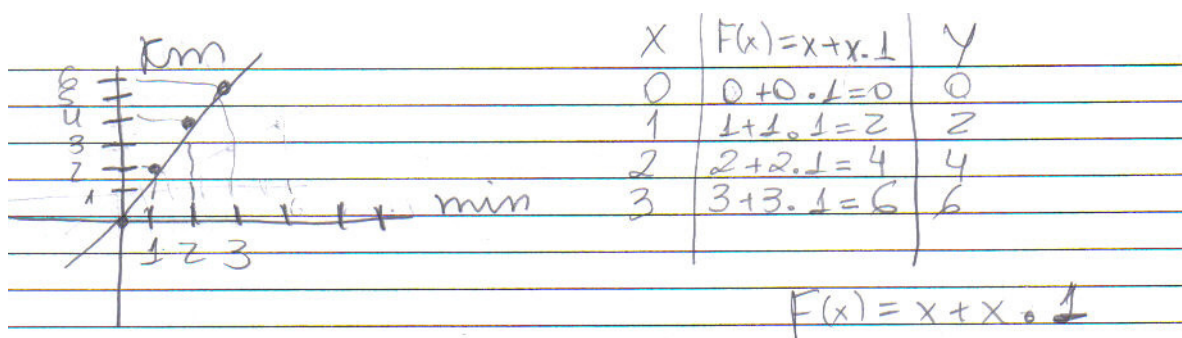 Km
6
5
4
3
2
1
min
1 2 3
X F(x)=x+x.1 Y
0 0+0.1=0 0
1 1+1.1=2 2
2 2+2.1=4 4
3 3+3.1=6 6
F(x)=x+x.1